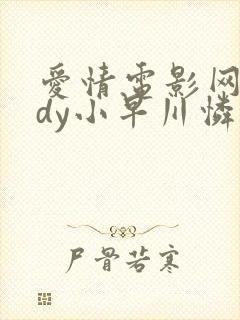 爱情电影网
dy小早川怜
尸骨若寒